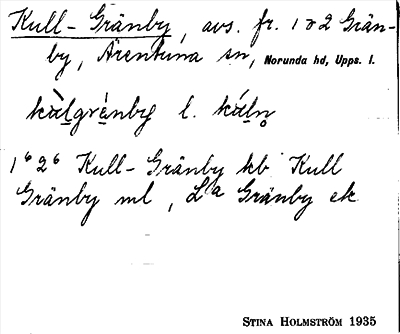 Kull-Gränby, avs. fr. 1 o 2 Grän-
by, Ärentuna sn, Norunda hd, Upps. l.
kùlgrènby l. kúln
1626 Kull-Gränby kb Kull
Gränby ml, La Gränby ek
STINA HOLMSTRÖM 1935